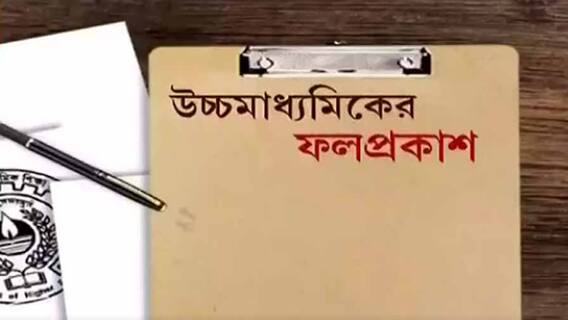 উচ্চমাধ্যমিকের
ফলপ্রকাশ